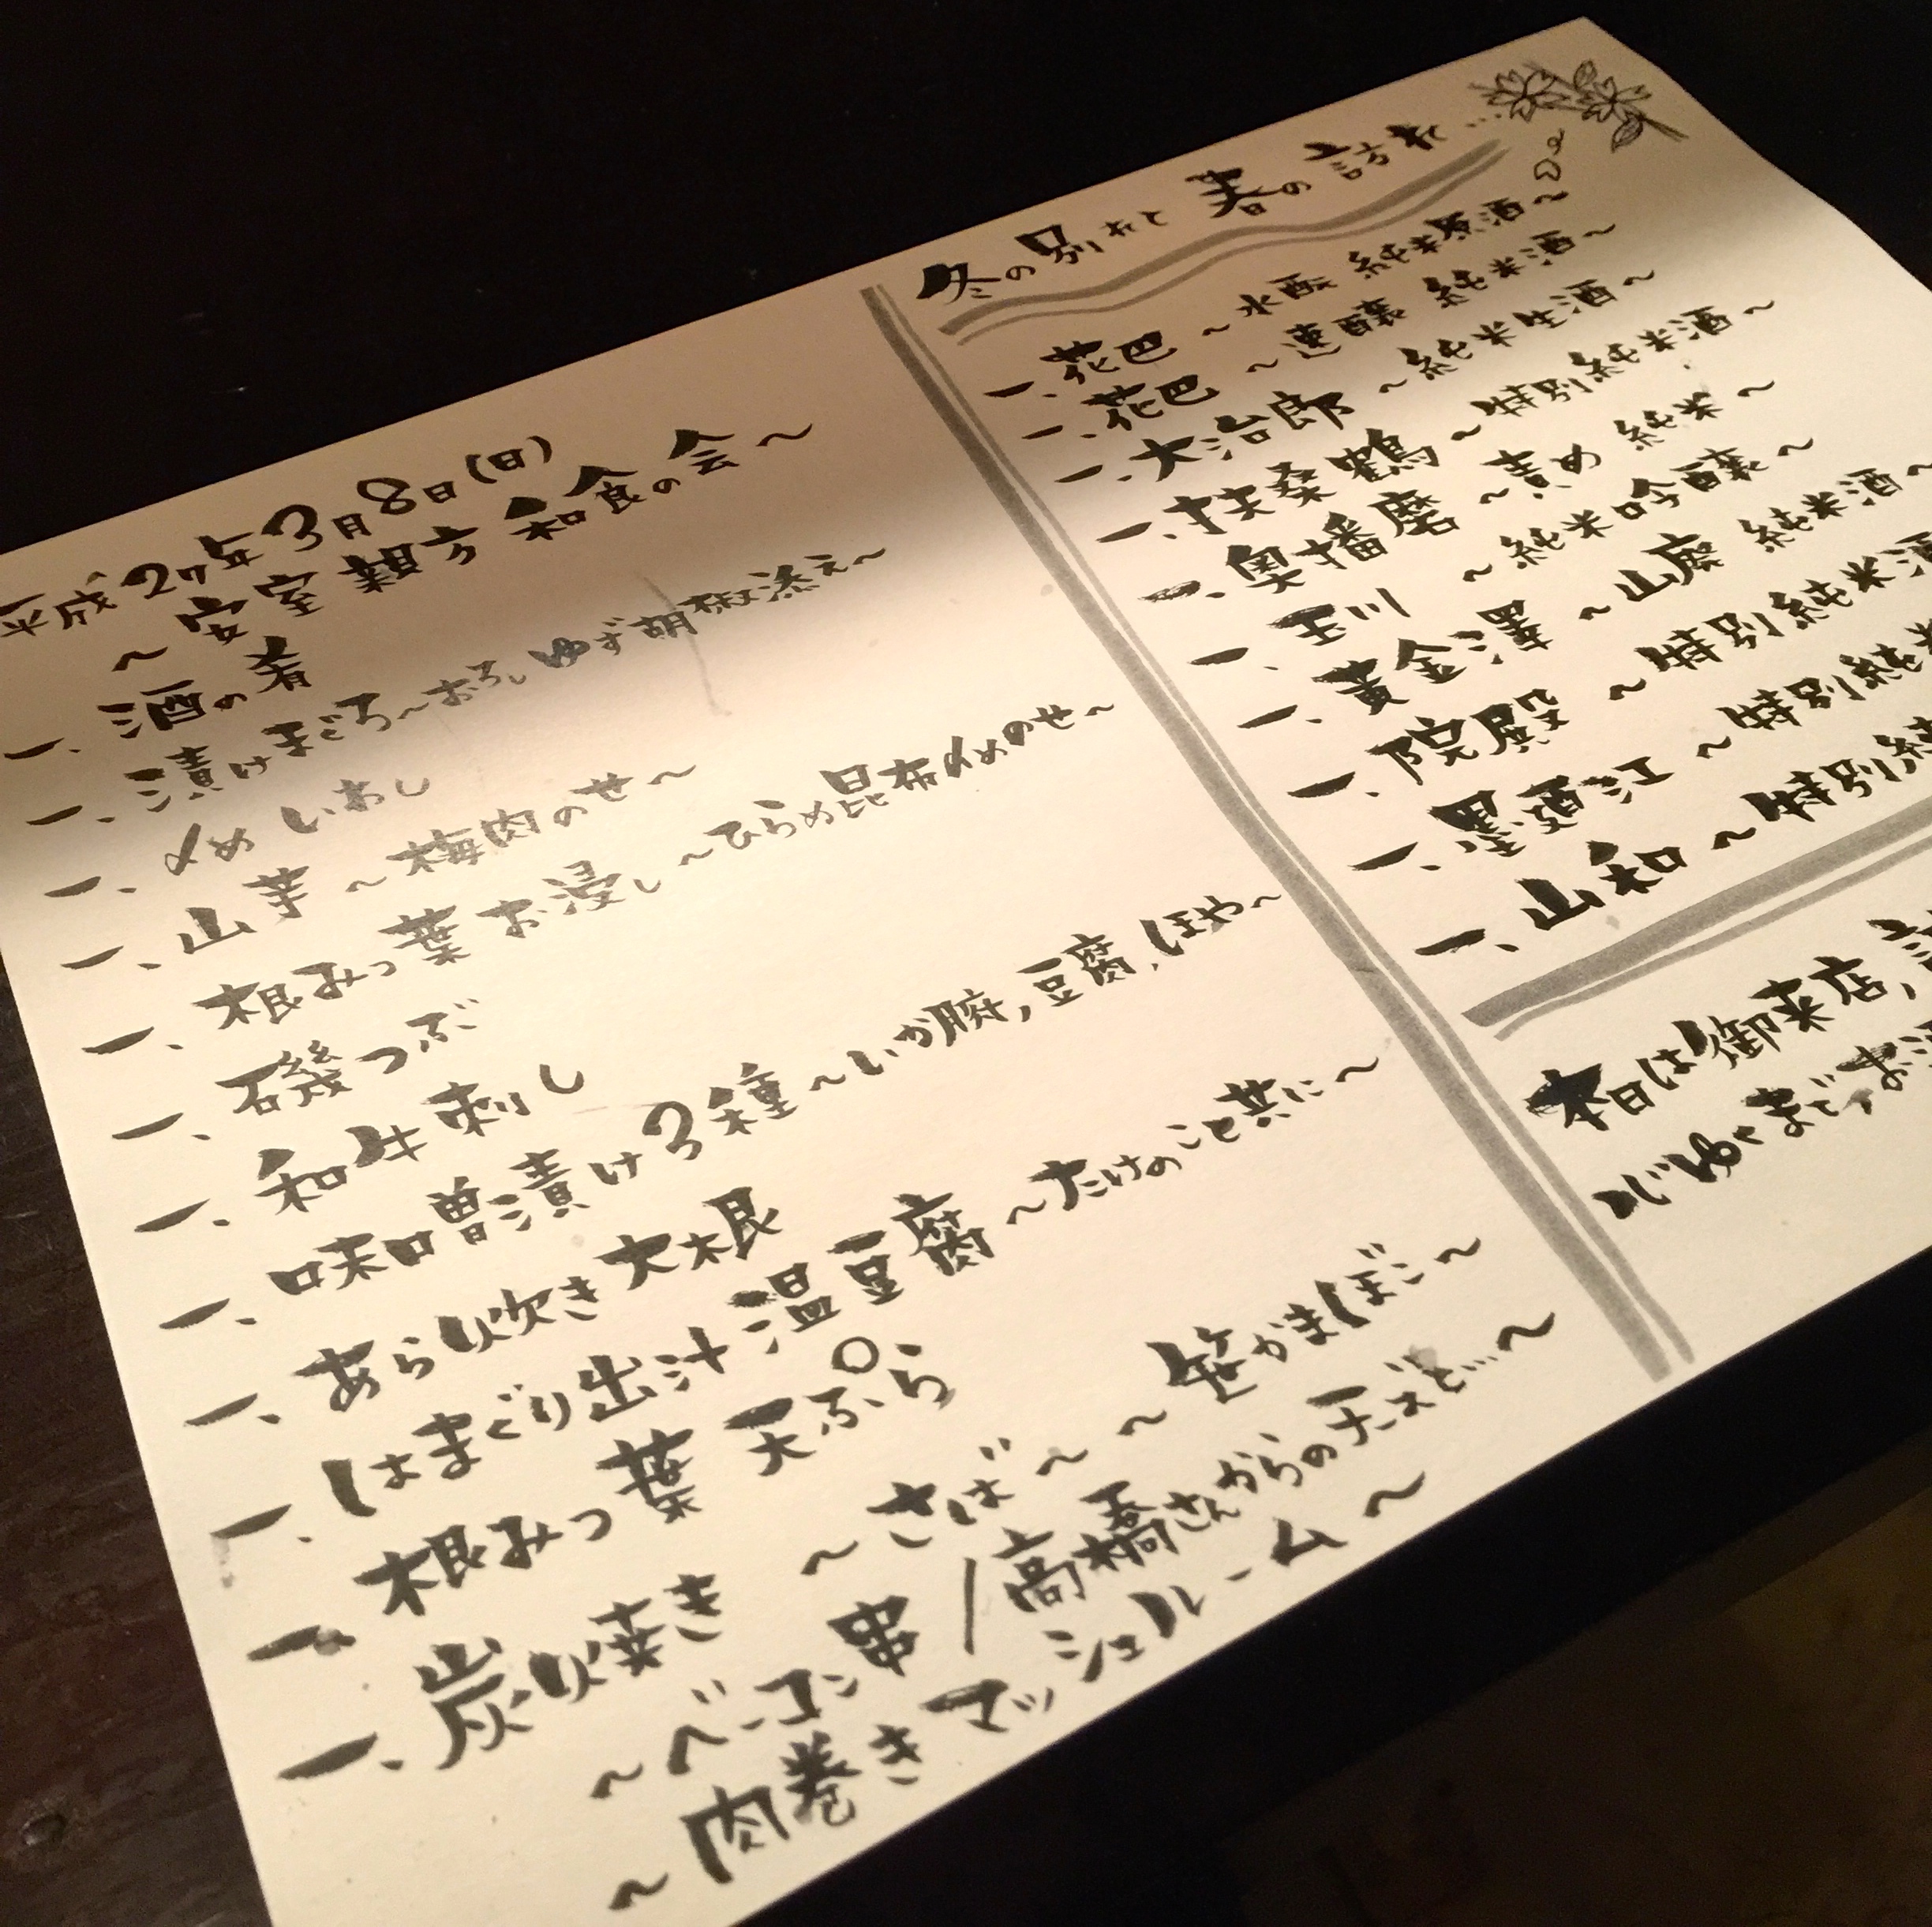 平成27年3月8日(日)
~安室親方 和食の会~
一、酒の肴
一、漬けまぐろ~おろしゆず胡椒添え~
一、〆めいわし
一、山芋 ~梅肉のせ~
一、根みつ葉 お浸し ~ひらめ昆布〆めのせ~
一、磯つぶ
一、和牛刺し
一、味噌漬け3種 ~いか腑,豆腐,ほや~
一、あら炊き大根
一、はまぐり出汁温豆腐 ~たけのこと共に~
一、根みつ葉 天ぷら
一、炭火焼き ~さば~ ~笹かまぼこ~
~ベーコン串/高橋さんからの
~肉巻きマッシュルーム~
冬の別れと 春の訪れ…
一、花巴 ~水酛 純米原酒~
一、花巴 ~速醸 純米酒~
一、大治郎 ~純米生酒~
一、扶桑鶴 ~特別純米酒~
一、奥播磨 ~責め 純米~
一、玉川 ~純米吟醸~
一、黄金澤 ~山廃 純米酒~
一、院殿 ~特別純米酒
一、墨廼江 ~特別純米
一、山和 ~特別純
本日は御来店,